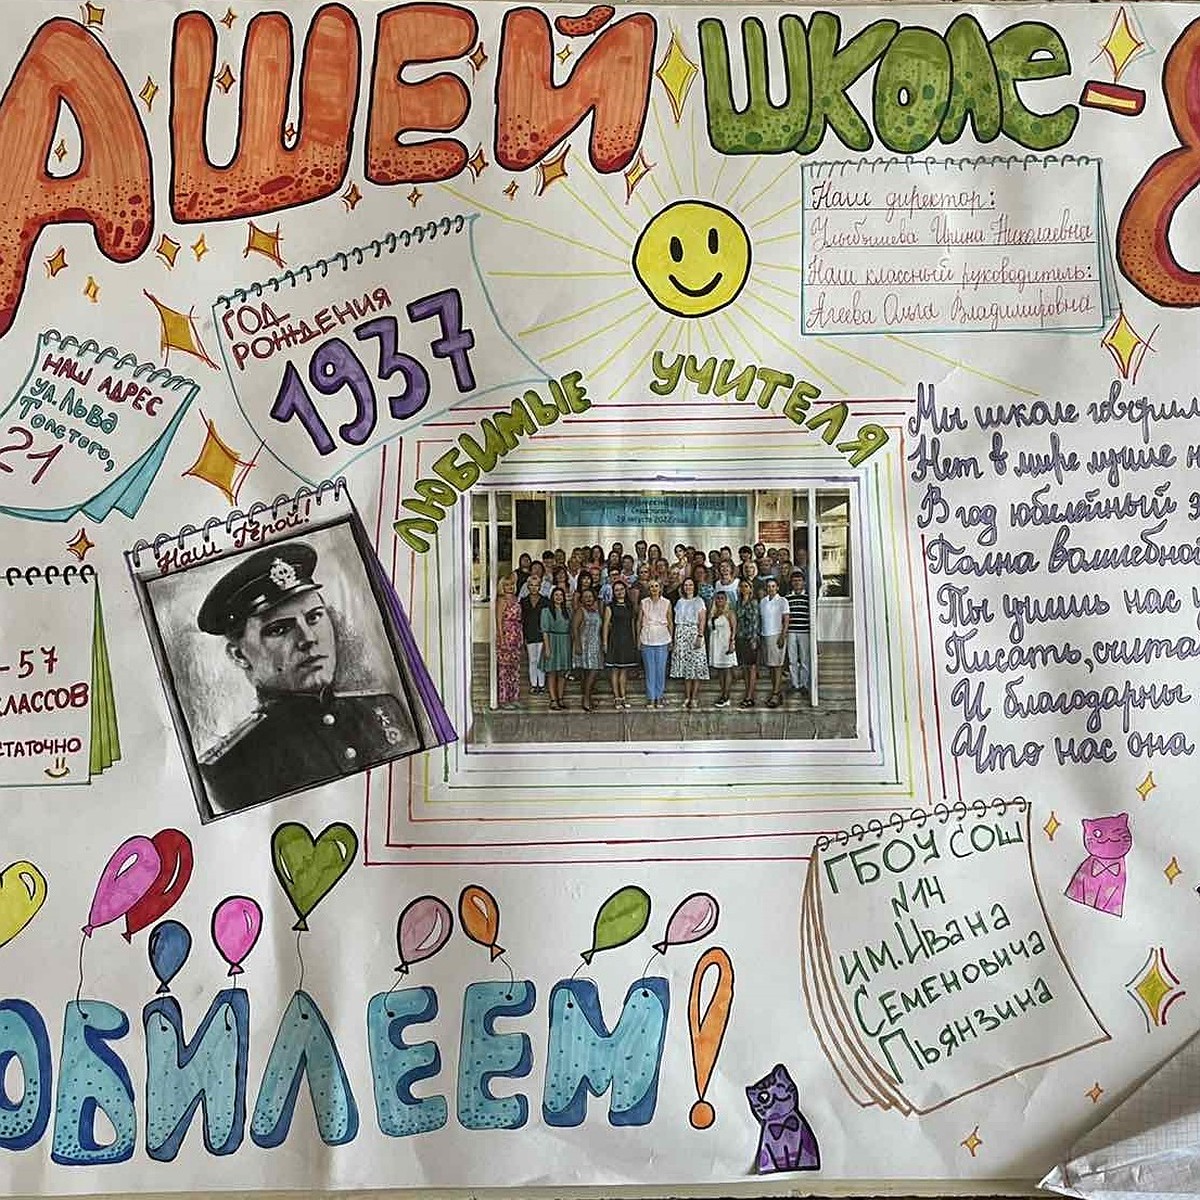 АШЕЙ ШКОЛЕ - 8
Наш директор:
Улыбышева Ирина Николаевна
Наш классный руководитель:
Агеева Ольга Владимировна
ГОД
РОЖДЕНИЯ
1937
НАШ АДРЕС
ул. Льва
Толстого,
21
ЛЮБИМЫЕ УЧИТЕЛЯ
Севастополь
29 августа 2022 года
Наш Герой!
-57
КЛАССОВ
СТАТОЧНО
Мы школе говорим
Нет в мире лучше н
В год юбилейный э
Полна волшебно
Ты учишь нас ч
Писать, счита
И благодарны
Что нас она
ГБОУ СОШ
N14
им. Ивана
Семеновича
Пьянзина
ЮБИЛЕЕМ!